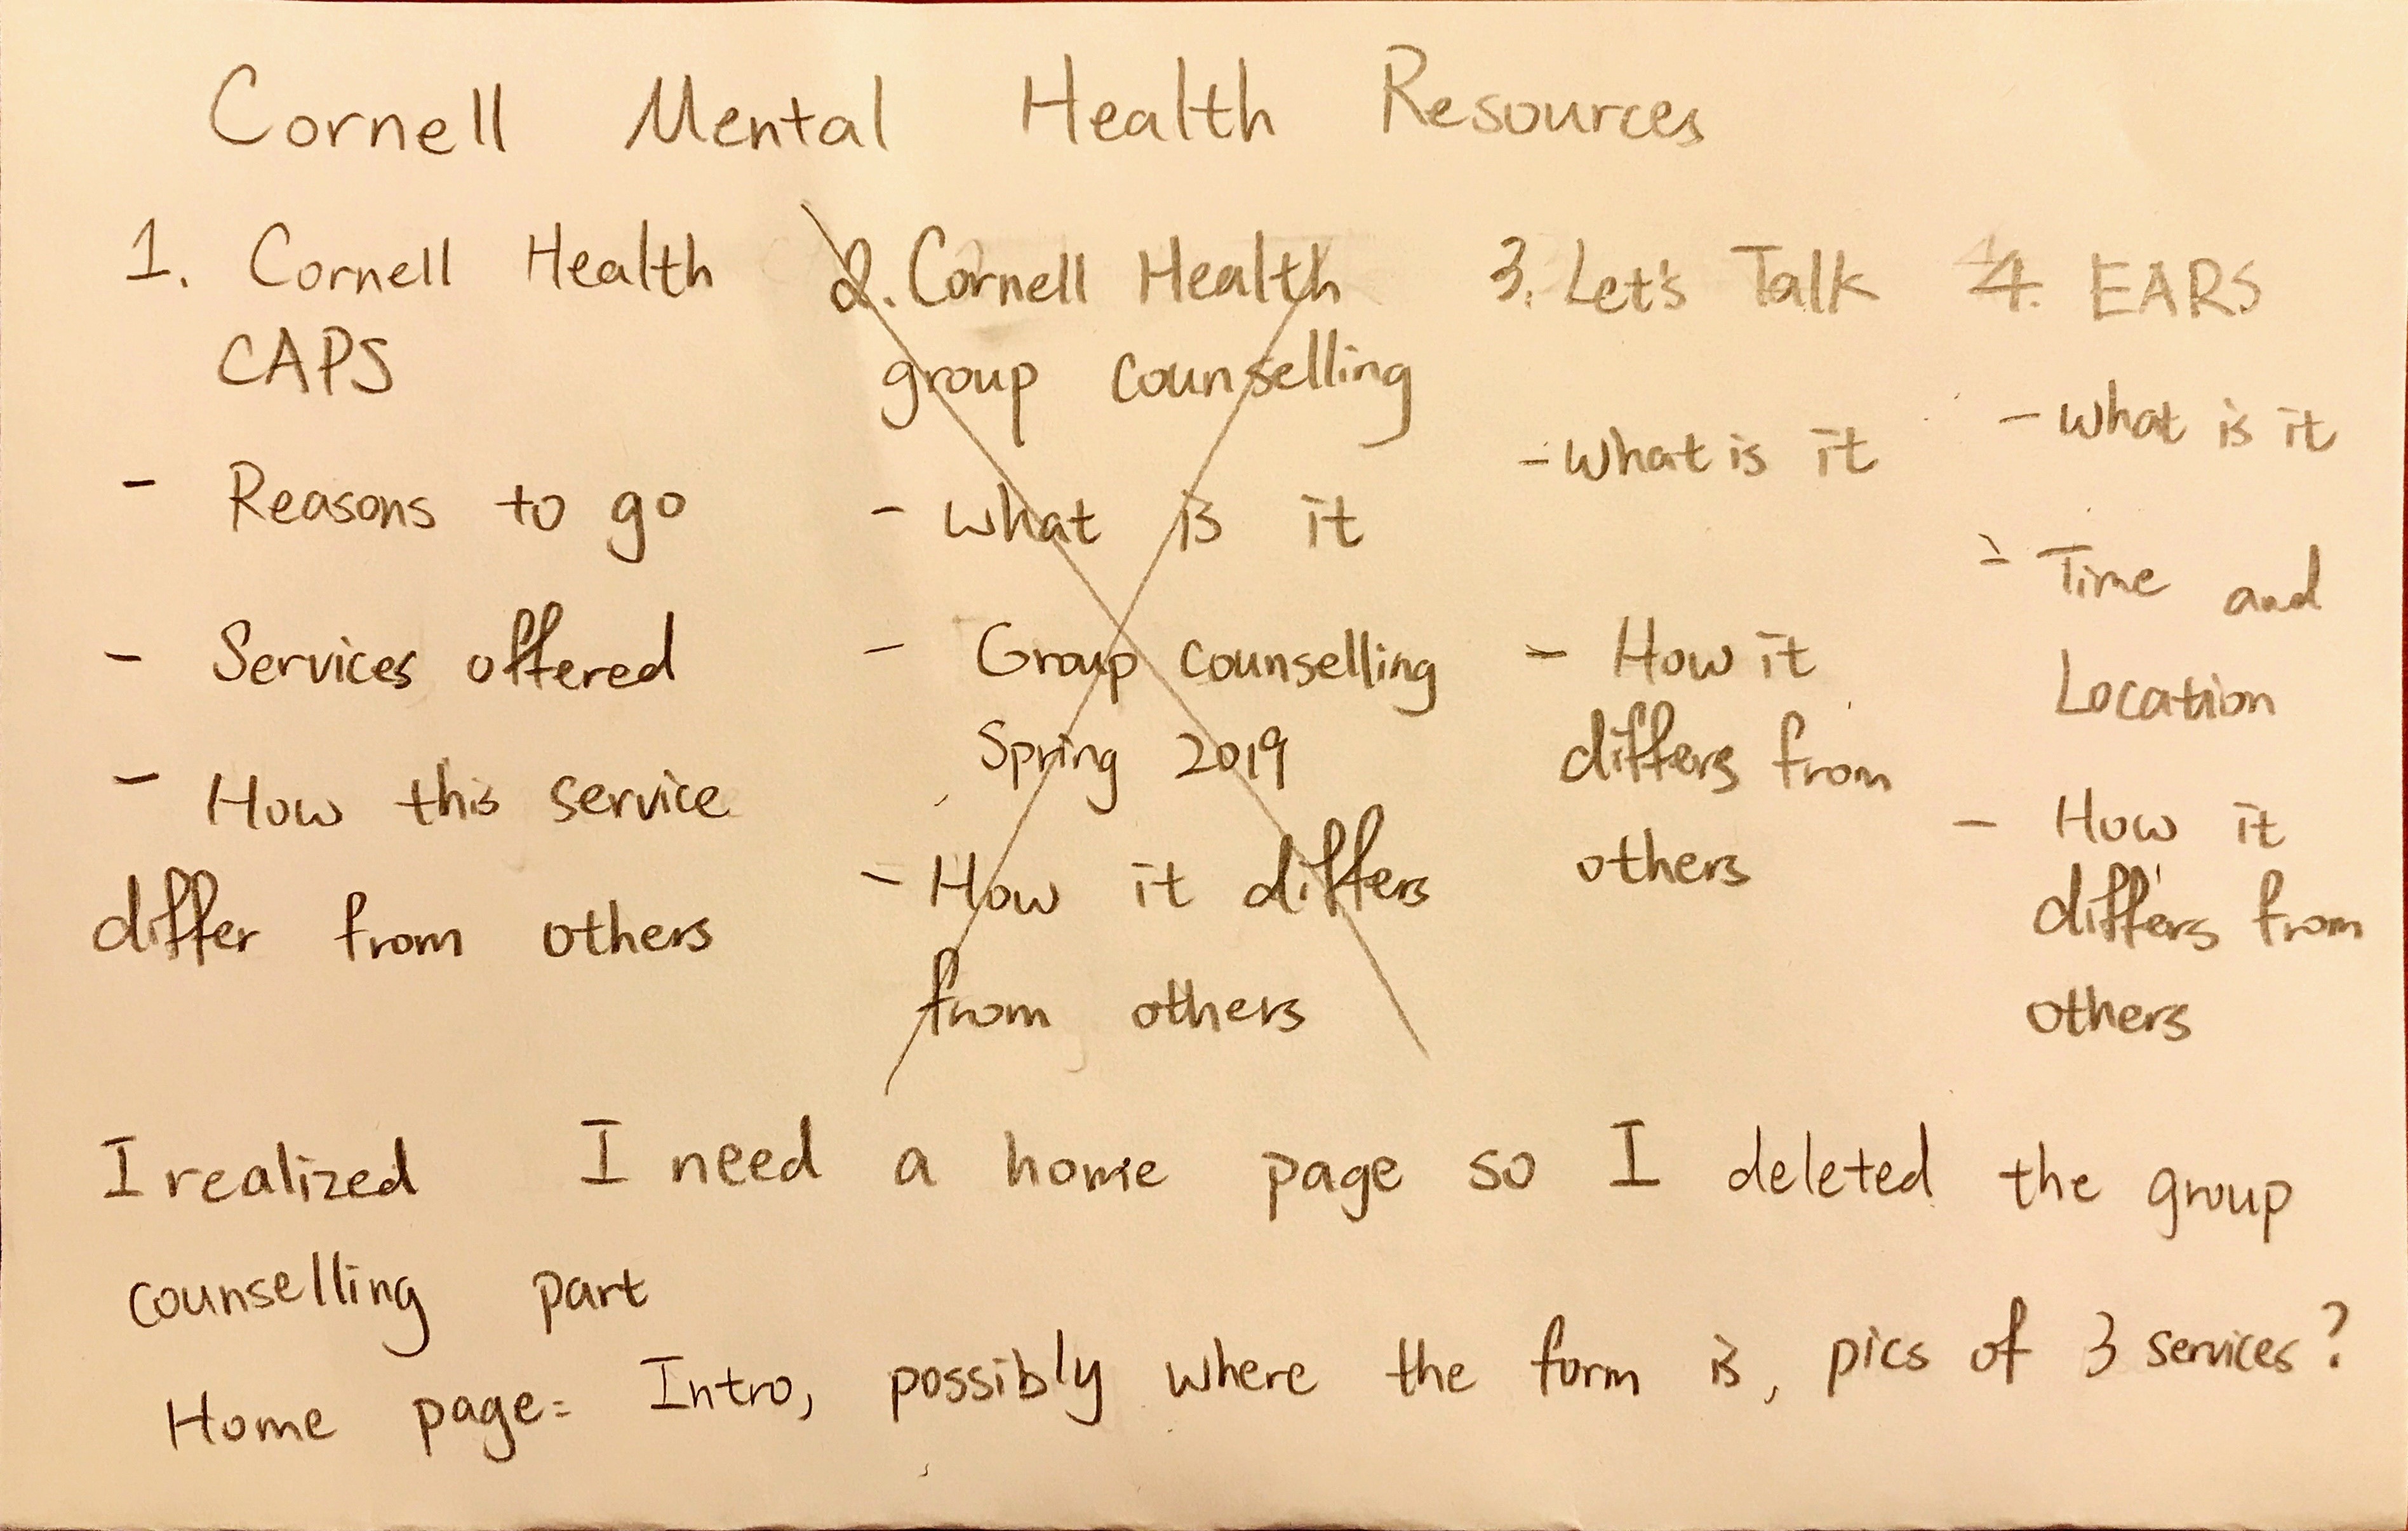 Cornell Mental Health Resources
1. Cornell Health
CAPS
- Reasons to go
- Services offered
- How this service
differ from others
2. Cornell Health
group counselling
- What is it
- Group counselling
Spring 2019
- How it differs
from others
3. Let's Talk
- What is it
- How it
differs from
others
4. EARS
- What is it
- Time and
Location
- How it
differs from
others
I realized I need a home page so I deleted the group
counselling part
Home page: Intro, possibly where the form is, pics of 3 services?